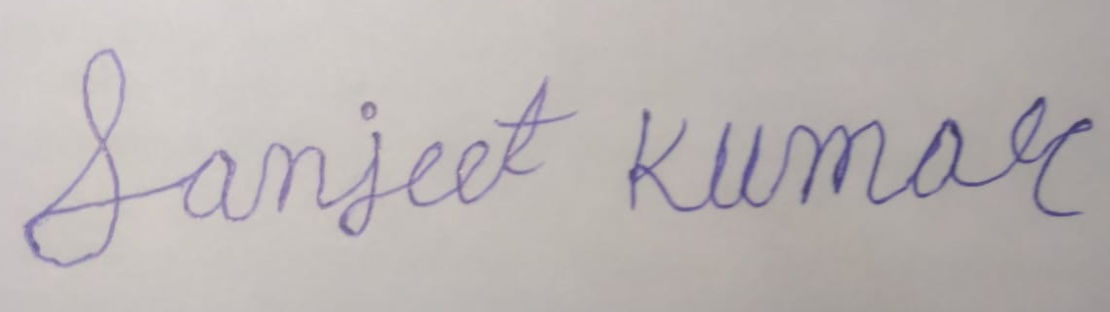 Sanjeet Kumar